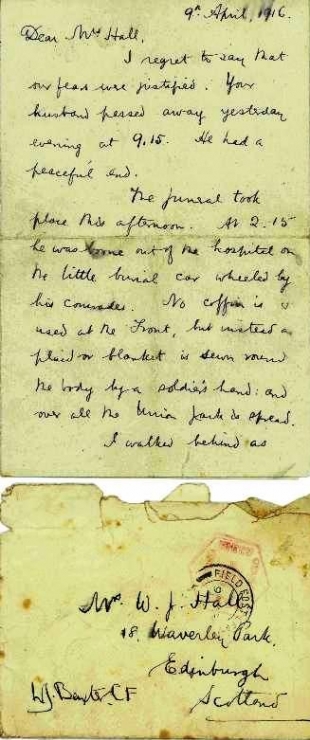 9th April, 1916.
Dear Mrs Hall,
I regret to say that
our fears were justified. Your
husband passed away yesterday
evening at 9.15. He had a
peaceful end.
The funeral took
place this afternoon. At 2.15
he was borne out of the hospital on
the little burial car wheeled by
his comrades. No coffin is
used at the Front, but instead a
plaid or blanket is sewn round
the body by a soldier's hand: and
over all the Union Jack is spread.
I walked behind as
FIELD POST
Mrs. W. J. Hall
18. Waverley Park.
Edinburgh
Scotland
WJ Baxter CF